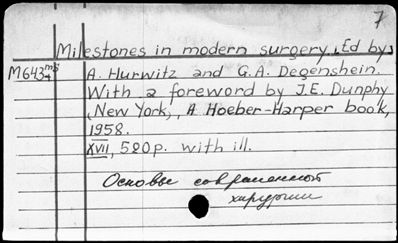 7
Milestones in modern surgery. Ed by
M643 A. Hurwitz and G.A. Degenshein.
With a foreword by J.E. Dunphy
New York, A Hoeber-Harper book,
1958.
XVII, 520 p. with ill.
Основы современной
хирургии